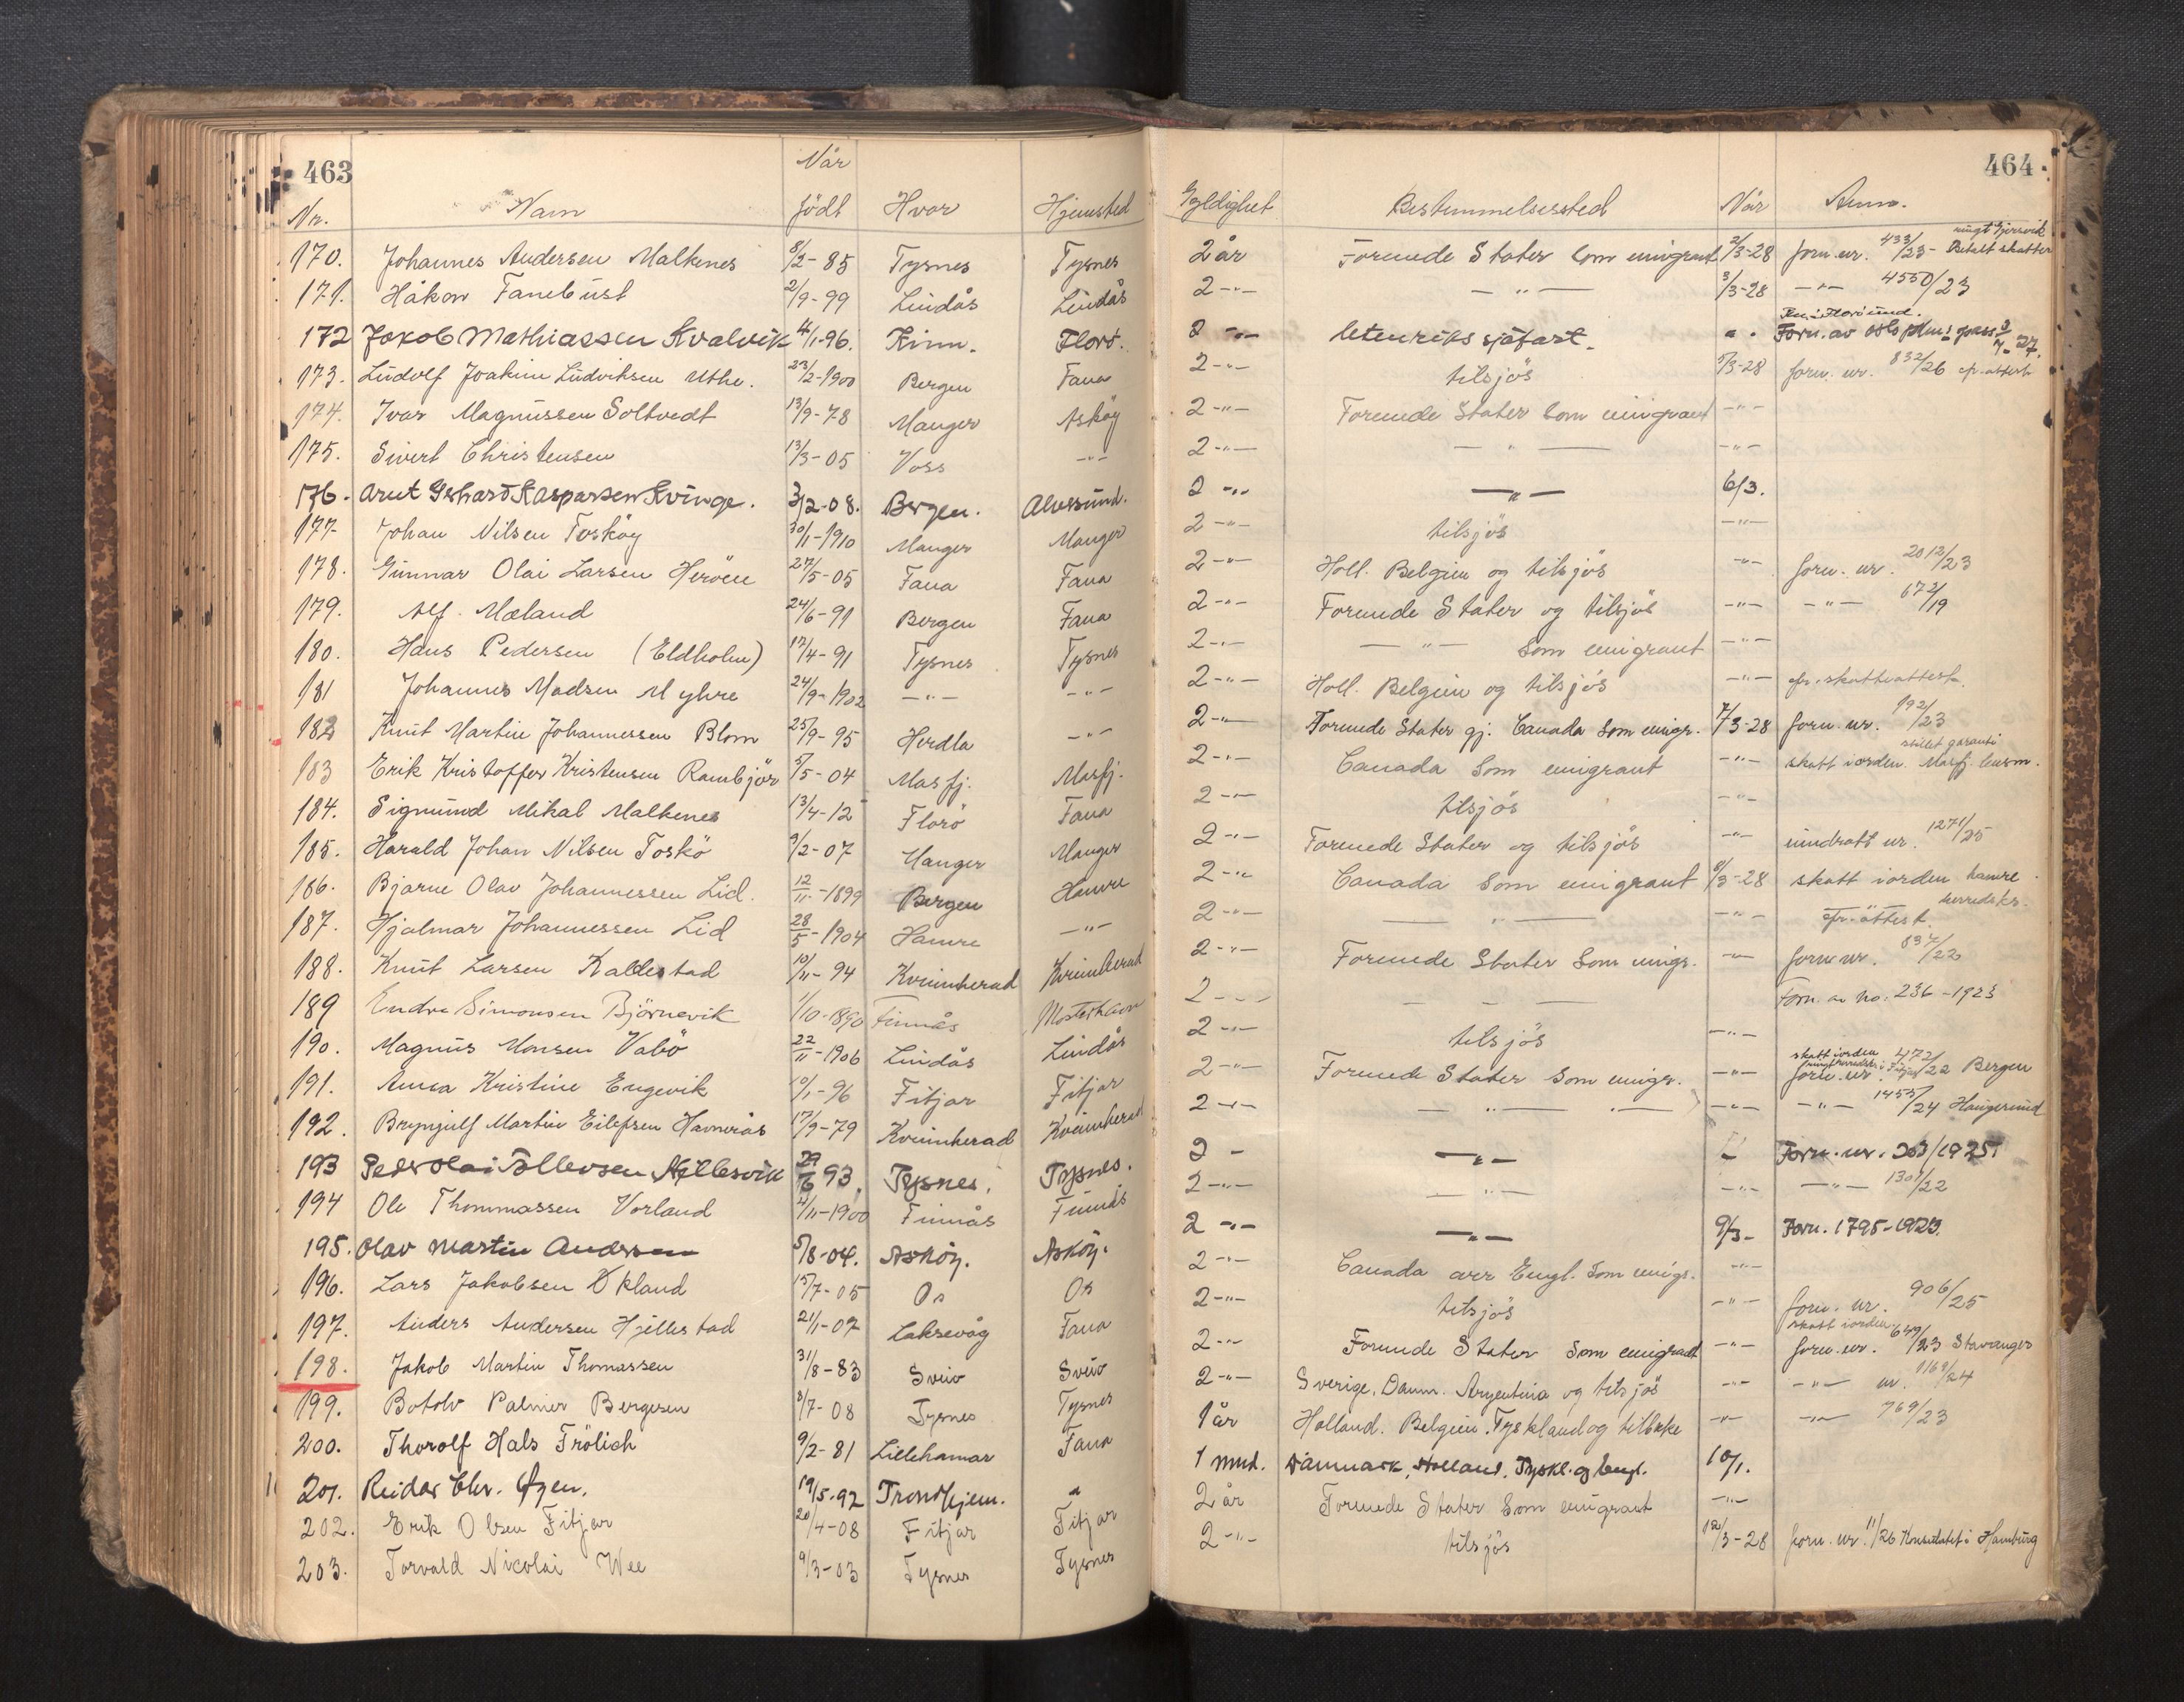 463
464
Når
Nr. Navn födt Hvor Hjemsted Gyldighet Bestemmelsessted Når Anm.
170. Johannes Andersen Malkenes 8/2-85 Tysnes Tysnes 2 år Forenede Stater som emigrant 2/3-28 forn. nr. 433/23- Betalt skatter
171. Håkon Fanebust 2/9-99 Lindås Lindås 2 -"- — " — 3/3-28 -"- 4550/23
172 Jakob Mathiassen Kvalvik 4/1-96. Kinn. Florö. 2 -"- Utenriks sjöfart. " " Forn. av Oslo pkm:s pass 3/7-27.
173. Ludolf Joakim Ludviksen Uthe. 23/2-1900 Bergen Fana 2 -"- tilsjös 5/3-28 forn. nr. 832/26
174. Ivar Magnussen Soltvedt 13/9-78 Manger Asköy 2 -"- Forenede Stater som emigrant -"-
175. Sivert Christensen 13/3-05 Voss -"- 2 -"- — " — -"-
176. Arnt Gerhard Kaspersen Kvinge. 3/2-08. Bergen. Alversund. 2 -"- — " — 6/3.
177. Johan Nilsen Tosköy 30/1-1910 Manger Manger 2 -"- tilsjös -"-
178. Gunnar Olai Larsen Heröen 27/5-05 Fana Fana 2 -"- Holl. Belgien og tilsjös -"- forn. nr. 2012/23
179. Alf. Mæland 24/6-91 Bergen Fana 2 -"- Forenede Stater og tilsjös -"- -"- 672/19
180. Hans Pedersen (Eldholm) 17/4-91 Tysnes Tysnes 2 -"- — " — som emigrant -"-
181 Johannes Madsen Myhre 24/9-1902 -"- -"- 2 -"- Holl. Belgien og tilsjös -"- skatteattest.
182 Knut Martin Johannessen Blom 25/9-95 Herdla -"- 2 -"- Forenede Stater gj. Canada som emigr. 7/3-28 forn. nr. 192/23
183 Erik Kristoffer Kristensen Rambjör 5/5-04 Masfj. Masfj. 2 -"- Canada som emigrant -"- skatt iorden. stillet garanti Masfj. lensm.
184. Sigmund Mikal Malkenes 13/4-12 Florö Fana 2 -"- tilsjös -"-
185. Harald Johan Nilsen Toskö 9/2-07 Manger Manger 2 -"- Forenede Stater og tilsjös -"- inndratt nr. 1271/25
186. Bjarne Olav Johannessen Lid. 12/11-1899 Bergen Hamre 2 -"- Canada som emigrant 8/3-28 skatt iorden hamre herredsks.
187. Hjalmar Johannessen Lid 28/5-1904 Hamre -"- 2 -"- — " — -"- attest.
188. Knut Larsen Kaldestad 10/11-94 Kvinnherad Kvinnherad 2 -"- Forenede Stater som emigr. -"- forn nr. 837/22
189 Endre Simonsen Björnevik 1/10-1890 Finnås Mosterhavn 2 -"- — — Forn. av No. 236-1923
190. Magnus Monsen Vabö 22/11-1906 Lindås Lindås 2 -"- tilsjös -"-
191. Anna Kristine Engevik 10/1-96 Fitjar Fitjar 2 -"- Forenede Stater som emigr. -"- skatt iorden forn. nr. 472/22 Bergen
192. Brynjulf Martin Eilefsen Havnerås 17/9-79 Kvinnherad Kvinnherad 2 -"- — " — " — -"- -"- 1455/24 Haugesund
193 Peder Olai Tollevsen Hillesvik 29/6 93. Tysnes. Tysnes. 2 - — " — Forn. nr. 263/1925.
194 Ole Thommassen Vorland 4/11-1900 Finnås Finnås 2 -"- — " — -"- -"- 1301/22
195. Olav Martin Andersen 5/8-04. Asköy. Asköy. 2 -"- — " — 9/3- Forn. 1795-1923.
196. Lars Jakobsen Ökland 15/7-05 Os Os 2 -"- Canada over Engl. som emigr. -"-
197. Anders Andersen Hjellestad 21/1-07 Laksevåg Fana 2 -"- tilsjös -"- forn. nr. 906/25
198. Jakob Martin Thomassen 31/8-83 Sveio Sveio 2 -"- Forenede Stater som emigrant -"- skatt iorden forn. nr. 649/23 Stavanger
199. Botolv Palmer Bergesen 8/7-08 Tysnes Tysnes 2 -"- Sverige, Danm. Argentina og tilsjös -"- -"- nr. 1163/24
200. Thorolf Hals Frölich 9/2-81 Lillehamar Fana 1 år Holland. Belgien. Tyskland og tilbake -"- -"- 769/23
201. Reidar Chr. Øyen. 19/5-92 Trondhjem. " 1 mnd. Danmark, Holland, Tyskl. og Engl. 10/1.
202. Erik Olsen Fitjar 20/4-08 Fitjar Fitjar 2 år Forenede Stater som emigrant -"-
203. Torvald Nicolai Wee 9/3-03 Tysnes Tysnes 2 -"- tilsjös 12/3-28 forn. nr. 11/26 Konsulatet i Hamburg